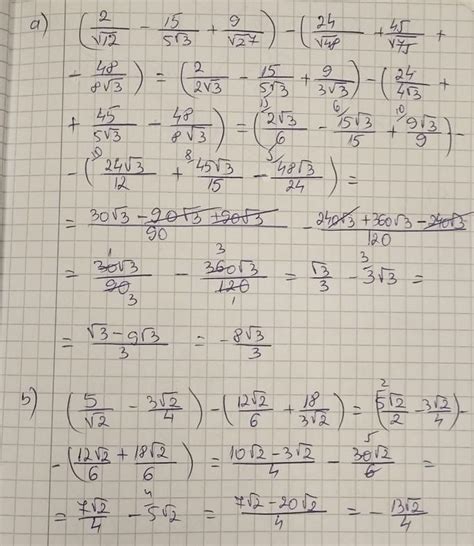 a) (2/√12 - 15/5√3 + 9/√27) - (24/√48 + 45/√75 +
- 48/8√3) = (2/2√3 - 15/5√3 + 9/3√3) - (24/4√3 +
+ 45/5√3 - 48/8√3) = (2√3/6 - 15√3/15 + 9√3/9) -
- (24√3/12 + 45√3/15 - 48√3/24) =
= (30√3 - 90√3 + 90√3)/90 - (240√3 + 360√3 - 240√3)/120
= 30√3/90 - 360√3/120 = √3/3 - 3√3 =
= (√3 - 9√3)/3 = - 8√3/3
b) (5/√2 - 3√2/4) - (12√2/6 + 18/3√2) = (5√2/2 - 3√2/4) -
- (12√2/6 + 18√2/6) = (10√2 - 3√2)/4 - 30√2/6 =
= 7√2/4 - 5√2 = (7√2 - 20√2)/4 = - 13√2/4